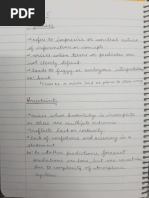 • refers to imprecise or unclear nature
of information or concept
• arises when terms or predicates are
not clearly defined.
• leads to fuzzy or ambiguous interpretation
Uncertainty
• when knowledge is incomplete
or there are multiple outcomes
• reflects lack of certainty
• lack of confidence and accuracy in a
statement.
predictions, forecast
predictions are low, but are uncertain
due to complexity of atmospheric
systems.